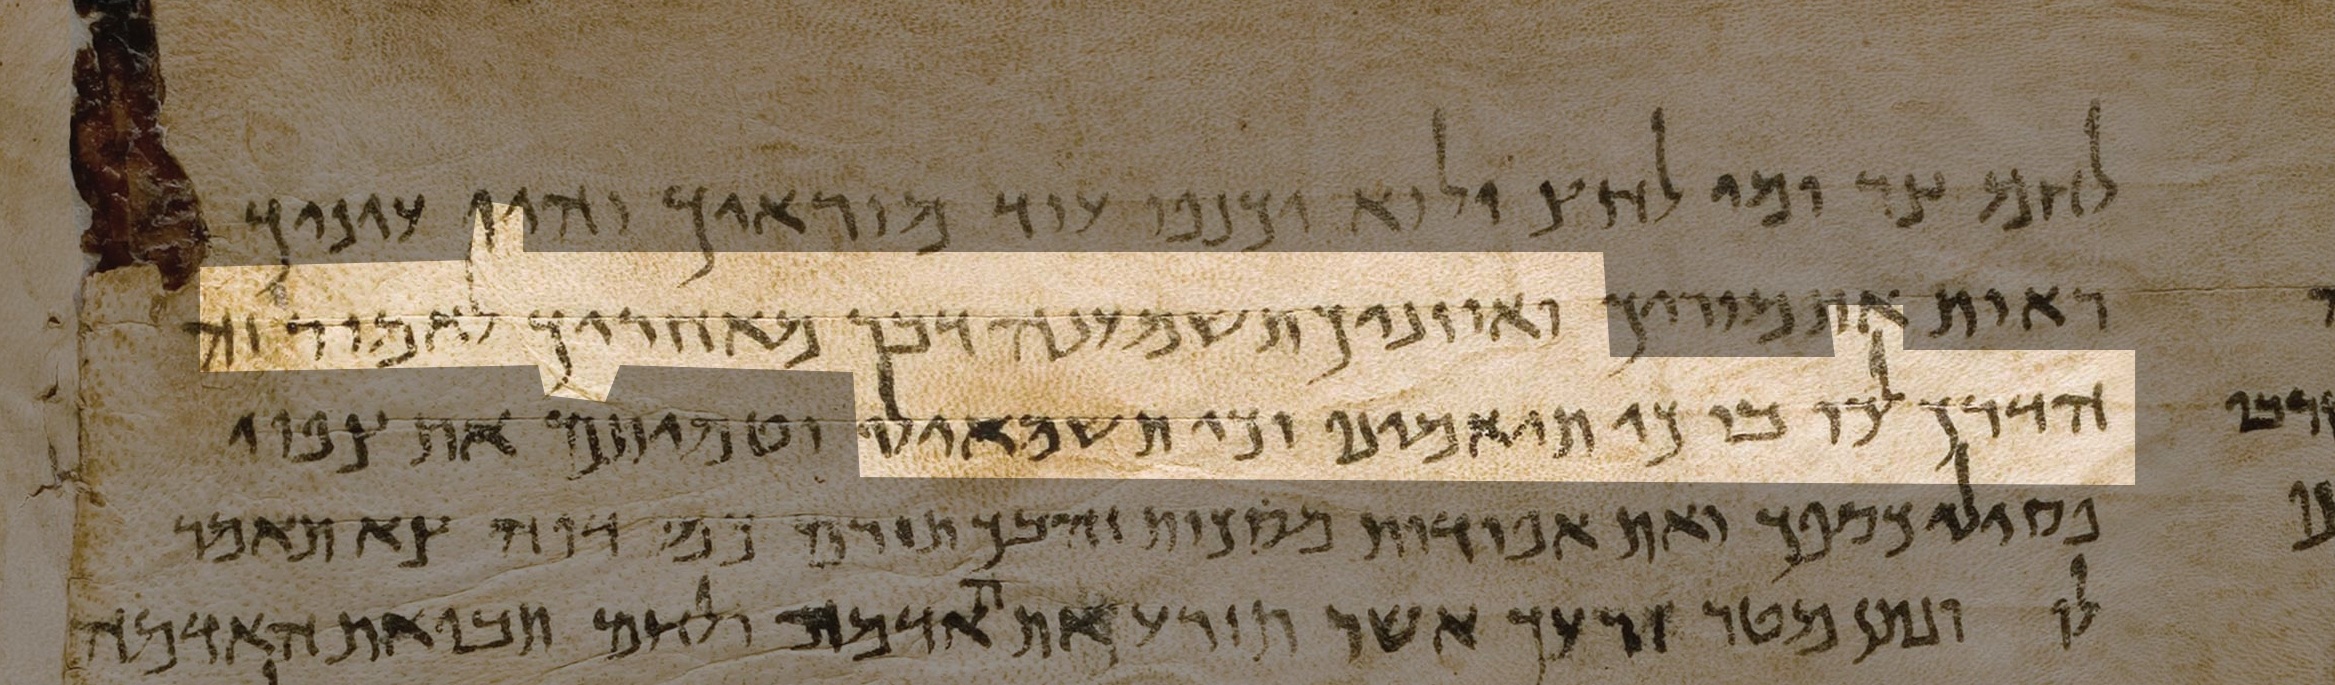 לחמ צר ומי לחץ ולוא יכנפו עוד מוראיך והיו עיניך
ראות את מוריך ואוזניך תשמענה דבר מאחריך לאמור זה
הדרך לכו בו כי תיאמינו וכי תשמאילו וטמיתם את צפוי
פסילי כספך ואת אפודת מסכת זהבך תזרם כמו דוה צא תאמר
לו ונתן מטר זרעך אשר תזרע את האדמה ולחם תבואת האדמה